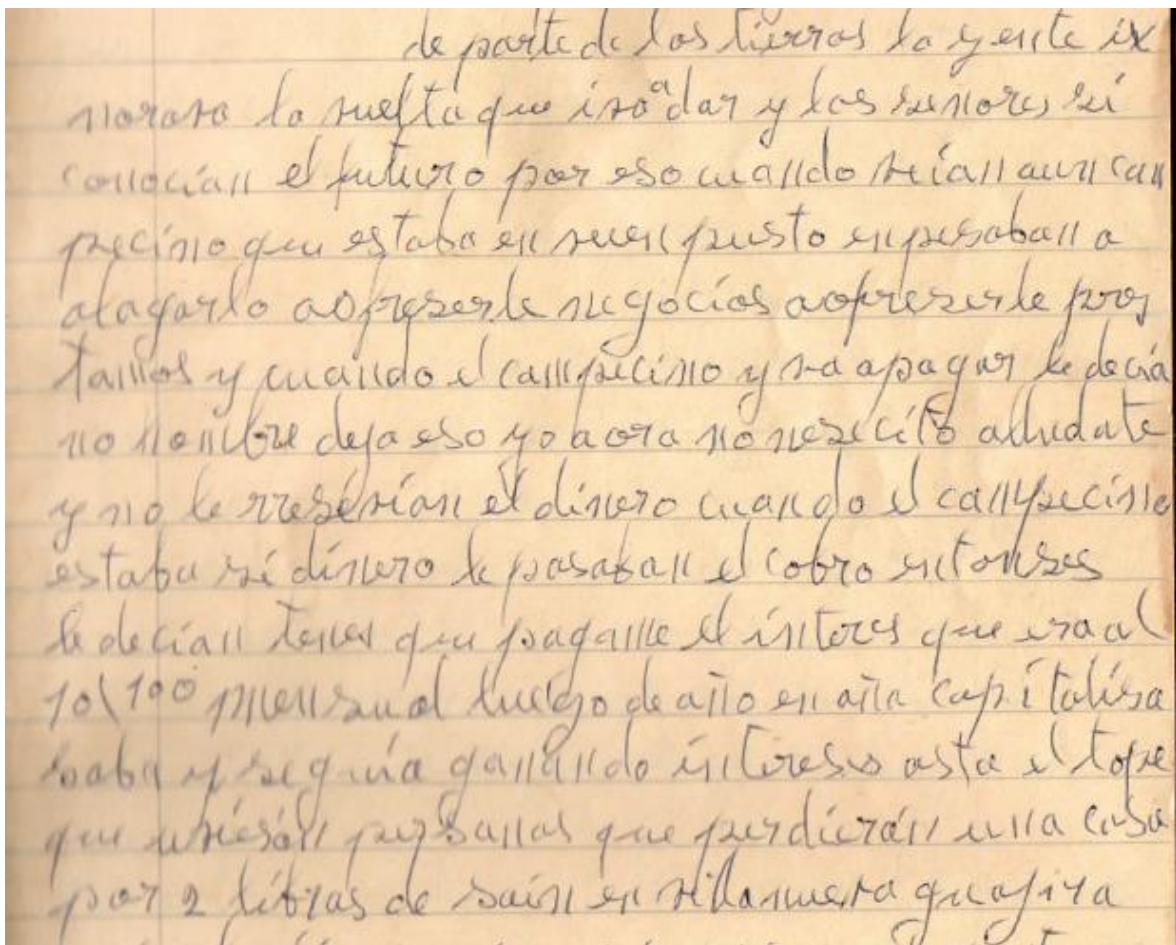 de parte de las tierras la gente ix
norava la vuelta que iva a dar y los senores si
conocian el futuro por eso cuando veían aun can
pecino que estaba en vuen puesto enpesaban a
alagarlo a ofreserle negocios a ofreserle pres
tamos y cuando el campecino y va apagar le decia
no nombre deja eso yo aora no nesecito alludate
y no le rresevian el dinero cuando el campecino
estaba si dinero le pasaban el cobro entonses
le decían tenes que pagame el interes que era al
10\100 mensual luego de año en año capitalisa
saba y seguia ganando intereses asta el tope
que uvieron personas que perdieron una casa
por 2 libras de sain en villanueva guajira